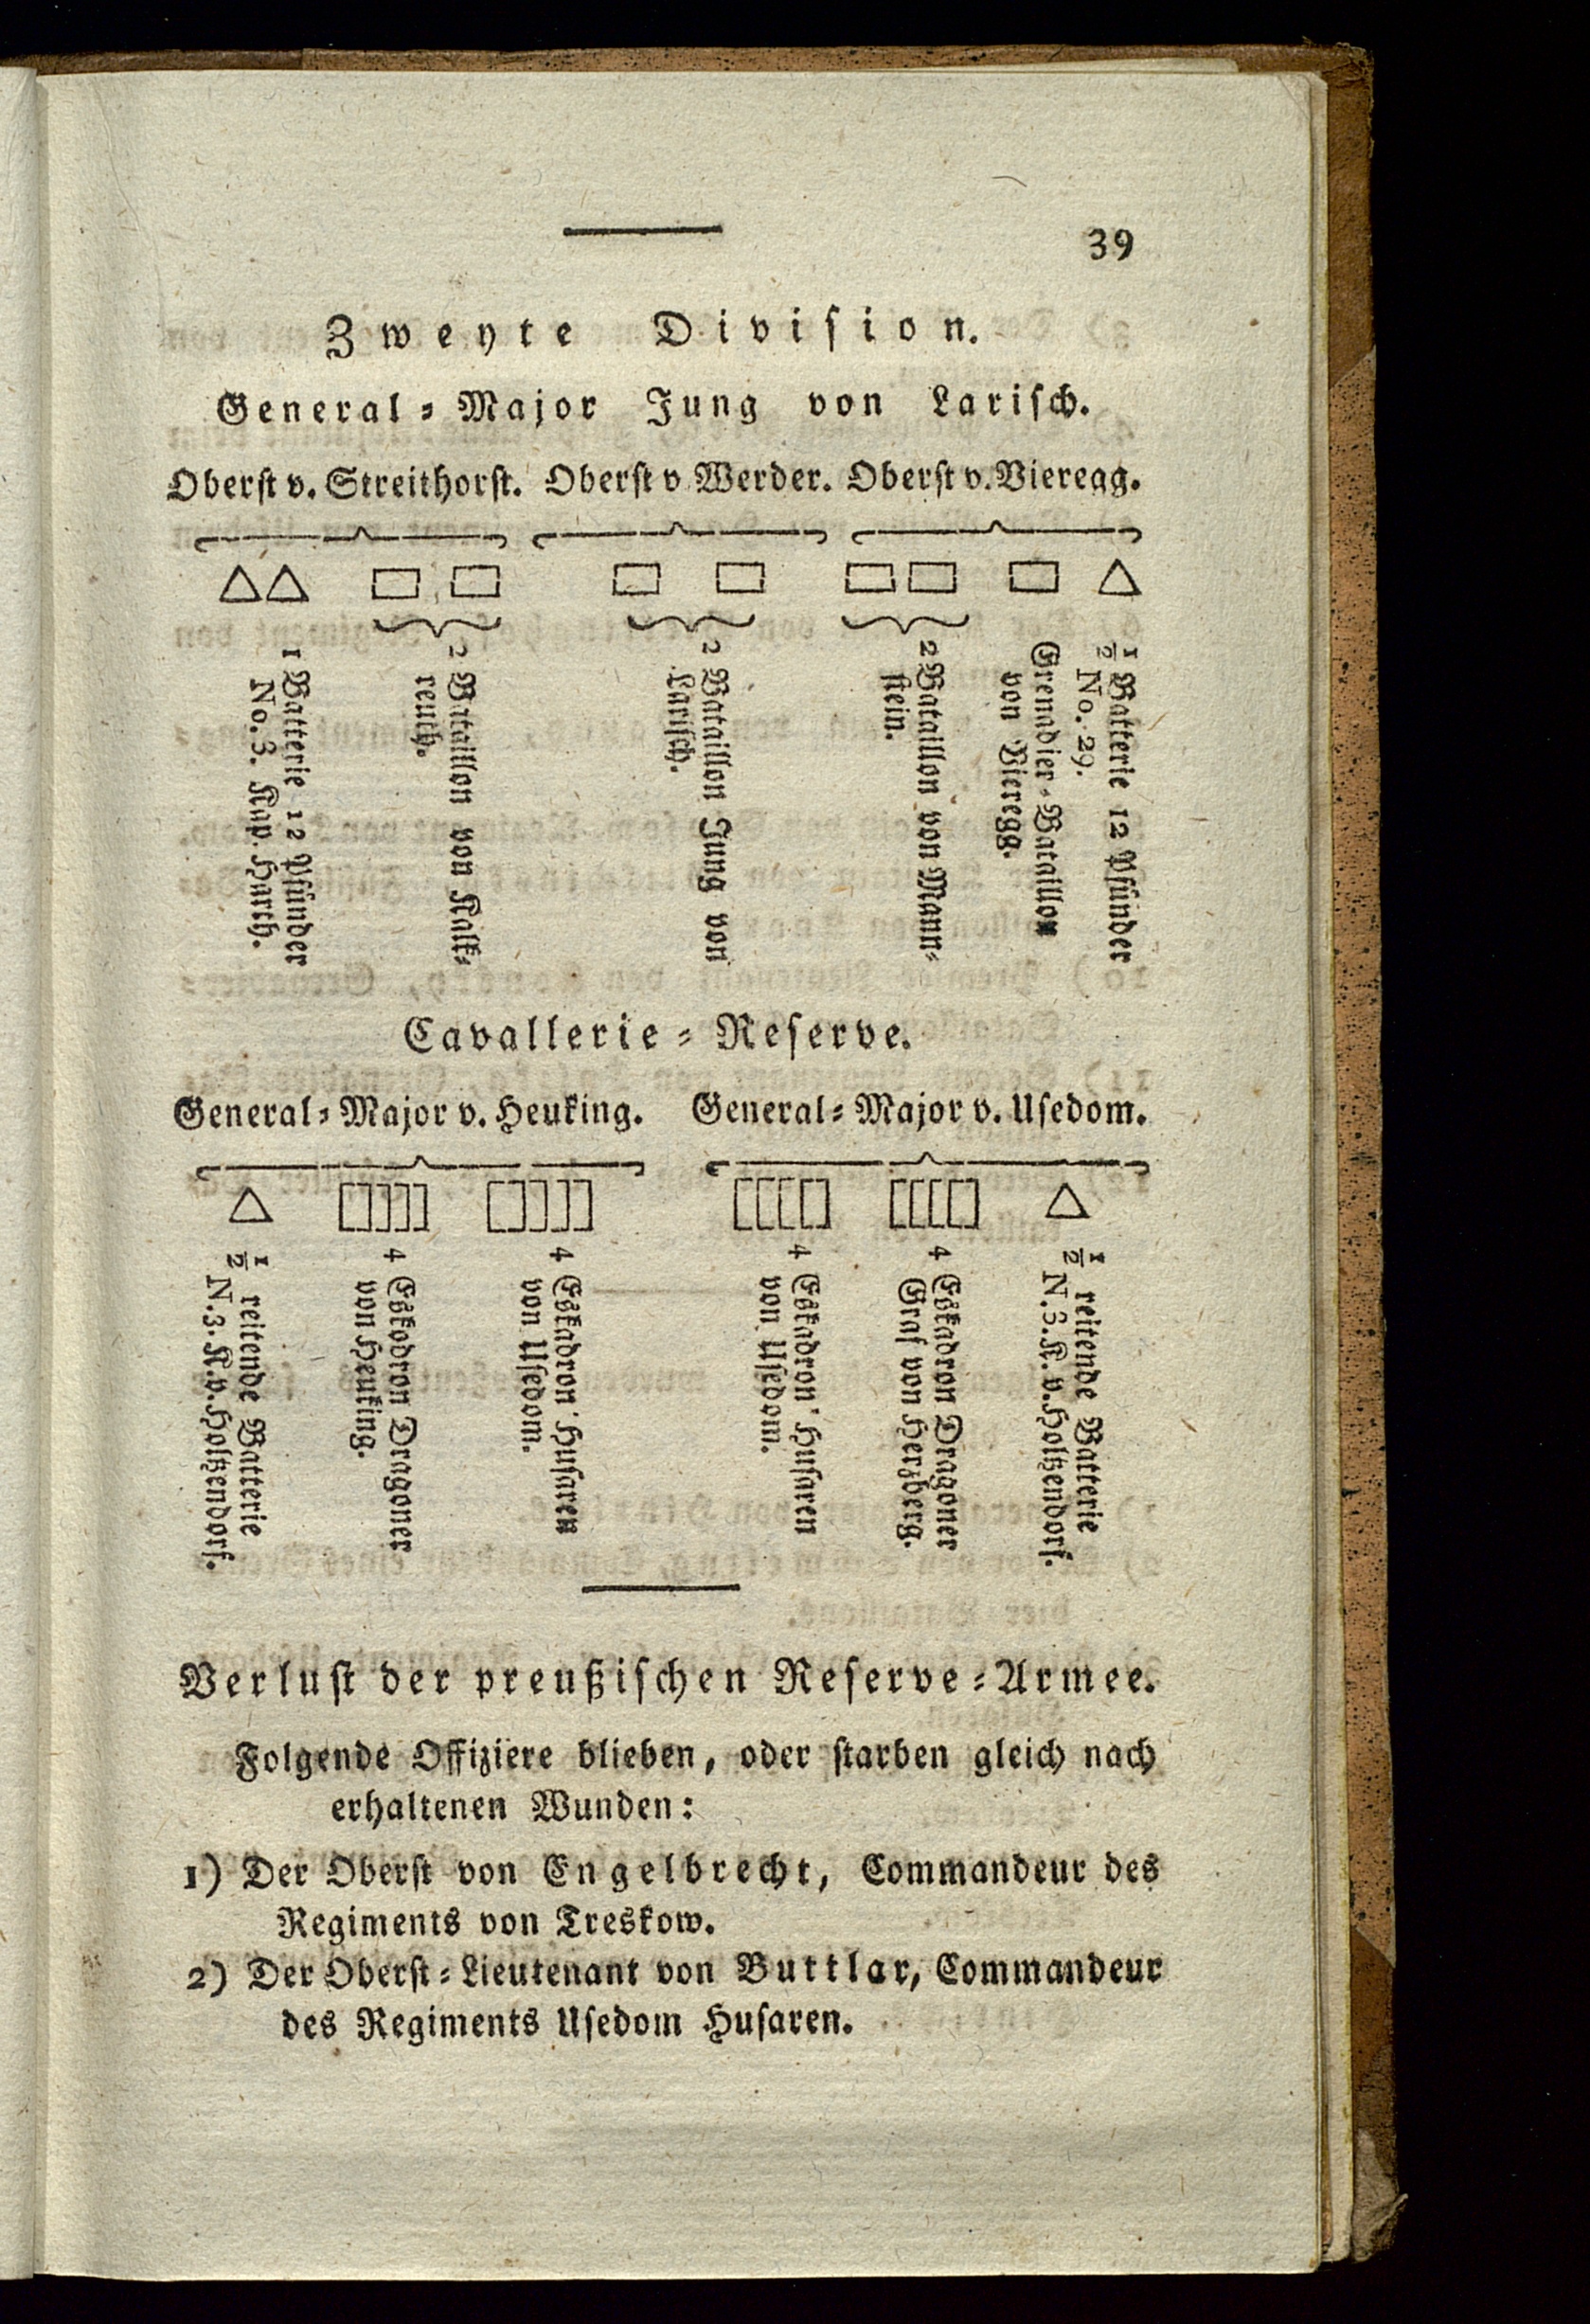 39
Zweyte Division.
General-Major Jung von Larisch.
Oberst v. Streithorst. Oberst v Werder. Oberst v. Vieregg.
1 Batterie 12 Pfünder
No. 3. Kap. Harth.
2 Bataillon von Kalk-
reuth.
2 Bataillon Jung von
Larisch.
2 Bataillon von Mann-
stein.
Grenadier-Bataillon
von Vieregg.
1/2 Batterie 12 Pfünder
No. 29.
Cavallerie-Reserve.
General-Major v. Heuking. General-Major v. Usedom.
1/2 reitende Batterie
N. 3. K. v. Holtzendorf.
4 Eskodron Dragoner
von Heuking.
4 Eskadron Husaren
von Usedom.
4 Eskadron Husaren
von Usedom.
4 Eskadron Dragoner
Graf von Herzberg.
1/2 reitende Batterie
N. 3. K. v. Holtzendorf.
Verlust der preußischen Reserve-Armee.
Folgende Offiziere blieben, oder starben gleich nach
erhaltenen Wunden:
1) Der Oberst von Engelbrecht, Commandeur des
Regiments von Treskow.
2) Der Oberst-Lieutenant von Buttlar, Commandeur
des Regiments Usedom Husaren.